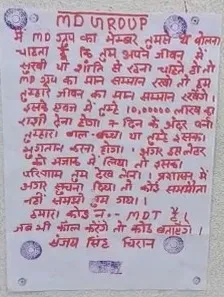 MD GROUP
मैं MD ग्रुप का मेम्बर तुमसे ये बोलना
चाहता हूँ कि तुम अपने जीवन में
सुखी या शांति से रहना चाहते हो तो
MD ग्रुप का मान सम्मान रखो तो हम
तुम्हारे जीवन का मान सम्मान रखेंगे
इसके एवज में तुम्हे 10,0000 लाख रु
राशी देना होगा 7 दिन के अंदर
तुम्हारा बाल-बच्चा या तुम्हे इसका
भुगतान करना होगा। अगर इस लेटर
को मजाक में लिया तो इसका
परिणाम तुम देख लेना। प्रशासन में
अगर सूचना दिया तो कोई समझौता
नहीं समझो तुम गया।
हमारा कोड न.- MDT है
जब भी कॉल करेंगे तो कोड बताएंगे।
संजय सिंह